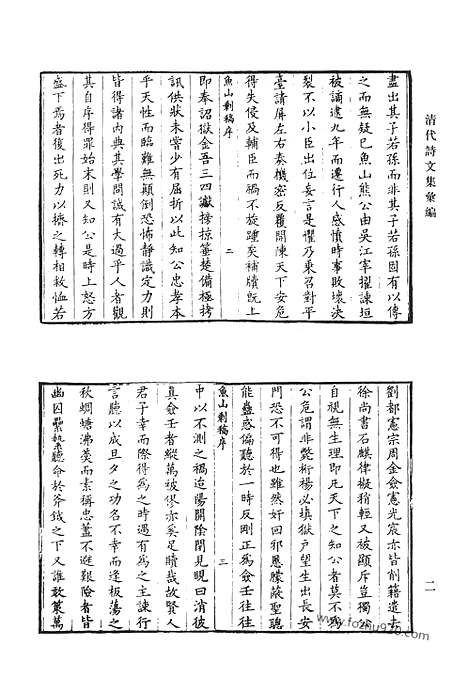 清代詩文集彙編
盡出其子若孫而非其子若孫固有以傳
之而無疑已魚山熊公由吳江宰擢諫垣
被誦遽九年而遷行人感憤時事敗壞決
裂不以小臣出位妄言是懼乃乘召對平
臺請屏左右奏機密反覆開陳天下安危
得失侵及輔臣而禍不旋踵矣補牘既上
魚山剩稿序
二
即奉詔獄金吾三四讞搒掠箠楚備極拷
訊供狀未嘗少有屈折以此知公忠孝本
乎天性而臨難無顛倒恐怖靜識定力則
皆得諸內典其學問誠有大過乎人者觀
其自序得罪始末則又知公是時上怒方
盛下焉者後出死力以擠之轉相救恤若
劉都憲宗周金僉憲光宸亦皆削籍遣去
徐尚書石麒律擬稍輕又被顯斥豈獨公
自視無生理即凡天下之知公者莫不為
公危謂非斃桁楊必填獄戶望生出長安
門恐不可得也雖然奸回邪慝矇蔽聖聰
能蠱惑偏聽於一時反剛正為僉壬往往
魚山剩稿序
三
中以不測之禍迨陽開陰閉見晛曰消彼
真僉壬者縱萬被僇亦奚足贖哉故賢人
君子幸而際得為之時遇有為之主諫行
言聽以成旦夕之功名不幸而逢板蕩之
秋蜩螗沸羹而素稱忠藎不避艱險者皆
幽囚纍縶聽命於斧鉞之下又誰敢策萬
二